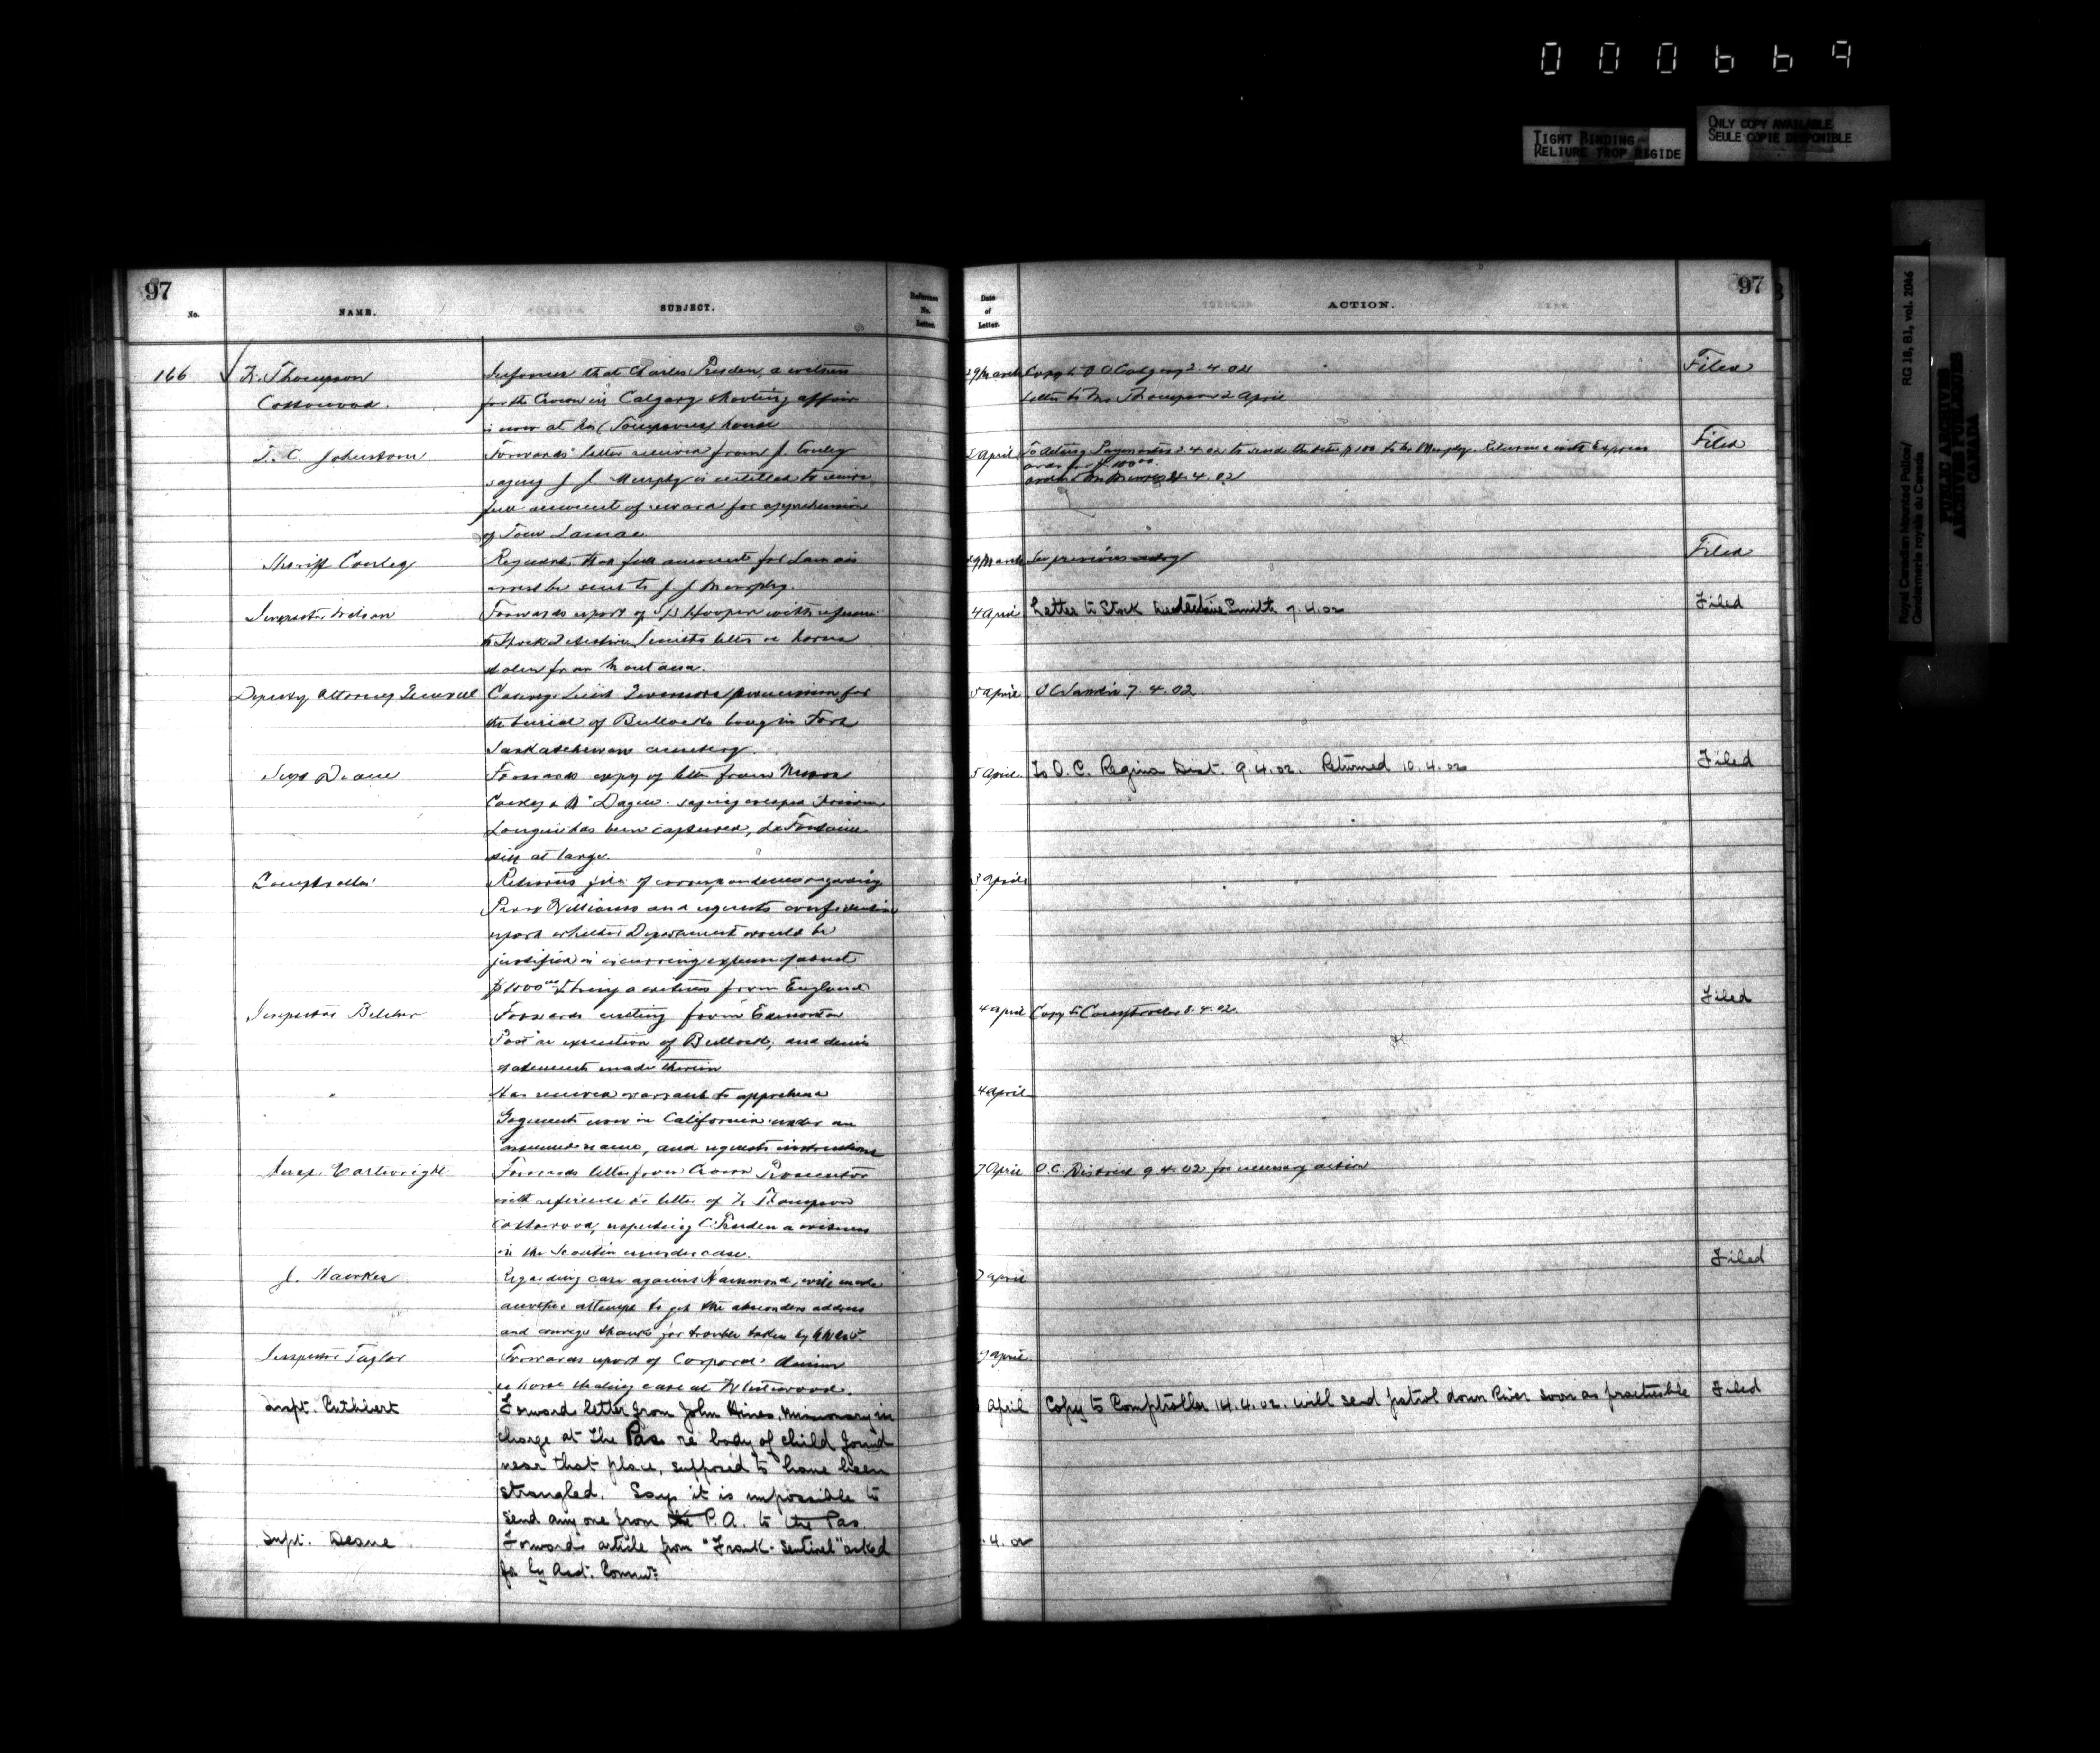 000669
TIGHT BINDING
RELIURE TROP RIGIDE
ONLY COPY AVAILABLE
SEULE COPIE DISPONIBLE
Royal Canadian Mounted Police/
Gendarmerie royale du Canada
RG 18, B1, vol. 2046
PUBLIC ARCHIVES
ARCHIVES PUBLIQUES
CANADA
97
No.
NAME.
SUBJECT.
Reference
No.
Letter.
166
Thompson
Cottonwood.
Informs that Charles Pruden, a witness
for the Crown in Calgary shooting affair
is now at his (Thompson's) house
T. C. Johnstone
Forwards letter received from J. Conley
saying J. J. Murphy is entitled to receive
full amount of reward for apprehension
of
Sheriff Conley
Requests that full amount for
arrest be sent to J. J. Murphy.
Inspector Wilson
Forwards report of Hooper with reference
to Stock Detective Smith's letter re horses
stolen from Montana.
Deputy Attorney General
Conveys Lieut Governors permission for
the burial of Bullock's body in Fort
Saskatchewan cemetery.
Supt Deane
Forwards copy of letter from Messrs
saying escaped prisoner
has been captured, La Fontaine
still at large.
Comptroller
Returns file of correspondence regarding
Williams and requests confidential
report whether Department would be
justified in incurring expense of about
$1000.00 to bring a witness from England
Inspector Belcher
Forwards cutting from Edmonton
Post re execution of Bullock, and denies
statements made therein
"
Has received warrant to apprehend
now in California under an
assumed name, and requests instructions
Insp. Cartwright
Forwards letter from Crown Prosecutor
with reference to letter of Thompson
Cottonwood, respecting C. Pruden a witness
in the murder case.
J. Hawkes
Regarding case against Hammond, will make
another attempt to get the absconders address
and conveys thanks for trouble taken by N.W.M.P.
Inspector Taylor
Forwards report of Corporal
re horse stealing case at Whitewood.
Inspt. Cuthbert
Forwards letter from John Hines, Missionary in
charge at The Pas re body of child found
near that place, supposed to have been
strangled. Says it is impossible to
send any one from the P.A. to the Pas.
Supt. Deane
Forwards article from "Frank Sentinel" asked
for by Asst. Commr.
97
Date
of
Letter.
ACTION.
29 March Copy to O C Calgary 2.4.02 Filed
Letter to Mr Thompson 2 April
2 April To Acting Paymaster 2.4.02 to send Murphy. Returned with Express Filed
order for
4.4.02
29 March See previous entry Filed
4 April Letter to Stock Detective Smith 7.4.02 Filed
5 April 7.4.02
5 April To O.C. Regina Dist. 9.4.02. Returned 10.4.02 Filed
3 April
Filed
4 April Copy to Comptroller 8.4.02.
4 April
7 April O.C. District 9.4.02 for necessary action
Filed
7 April
April
April Copy to Comptroller 14.4.02. will send patrol down River soon as practicable Filed
.4.02